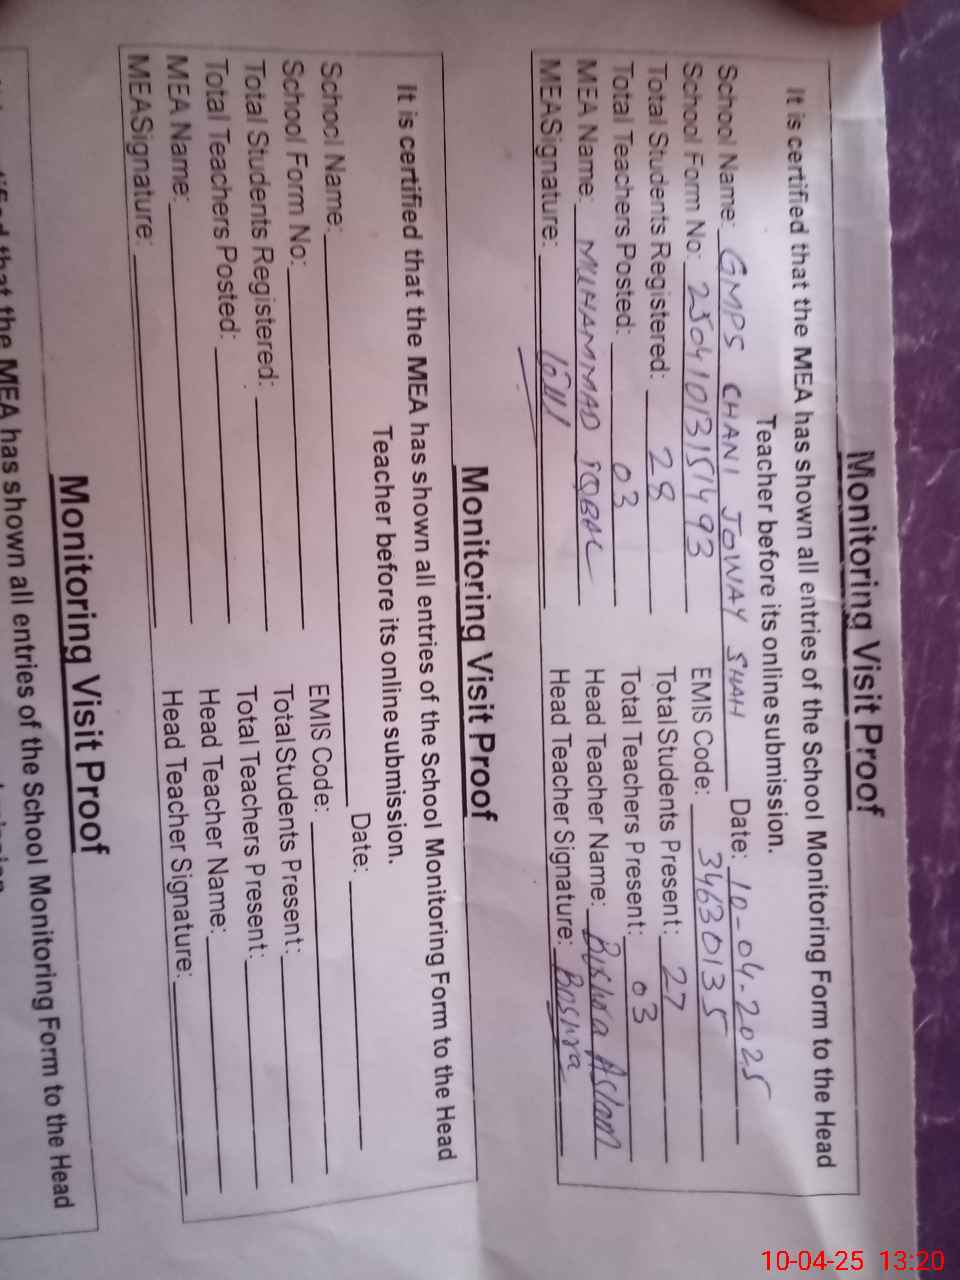 Monitoring Visit Proof
It is certified that the MEA has shown all entries of the School Monitoring Form to the Head
Teacher before its online submission.
School Name: GMPS CHANI JOWAY SHAH Date: 10-04-2025
School Form No: 25041013151493 EMIS Code: 34630135
Total Students Registered: 28 Total Students Present: 27
Total Teachers Posted: 03 Total Teachers Present: 03
MEA Name: MUHAMMAD IQBAL Head Teacher Name: Bushra Aslam
MEASignature: Head Teacher Signature: Boshra
Monitoring Visit Proof
It is certified that the MEA has shown all entries of the School Monitoring Form to the Head
Teacher before its online submission.
School Name: Date:
School Form No: EMIS Code:
Total Students Registered: Total Students Present:
Total Teachers Posted: Total Teachers Present:
MEA Name: Head Teacher Name:
MEASignature: Head Teacher Signature:
Monitoring Visit Proof
that the MEA has shown all entries of the School Monitoring Form to the Head
10-04-25 13:20